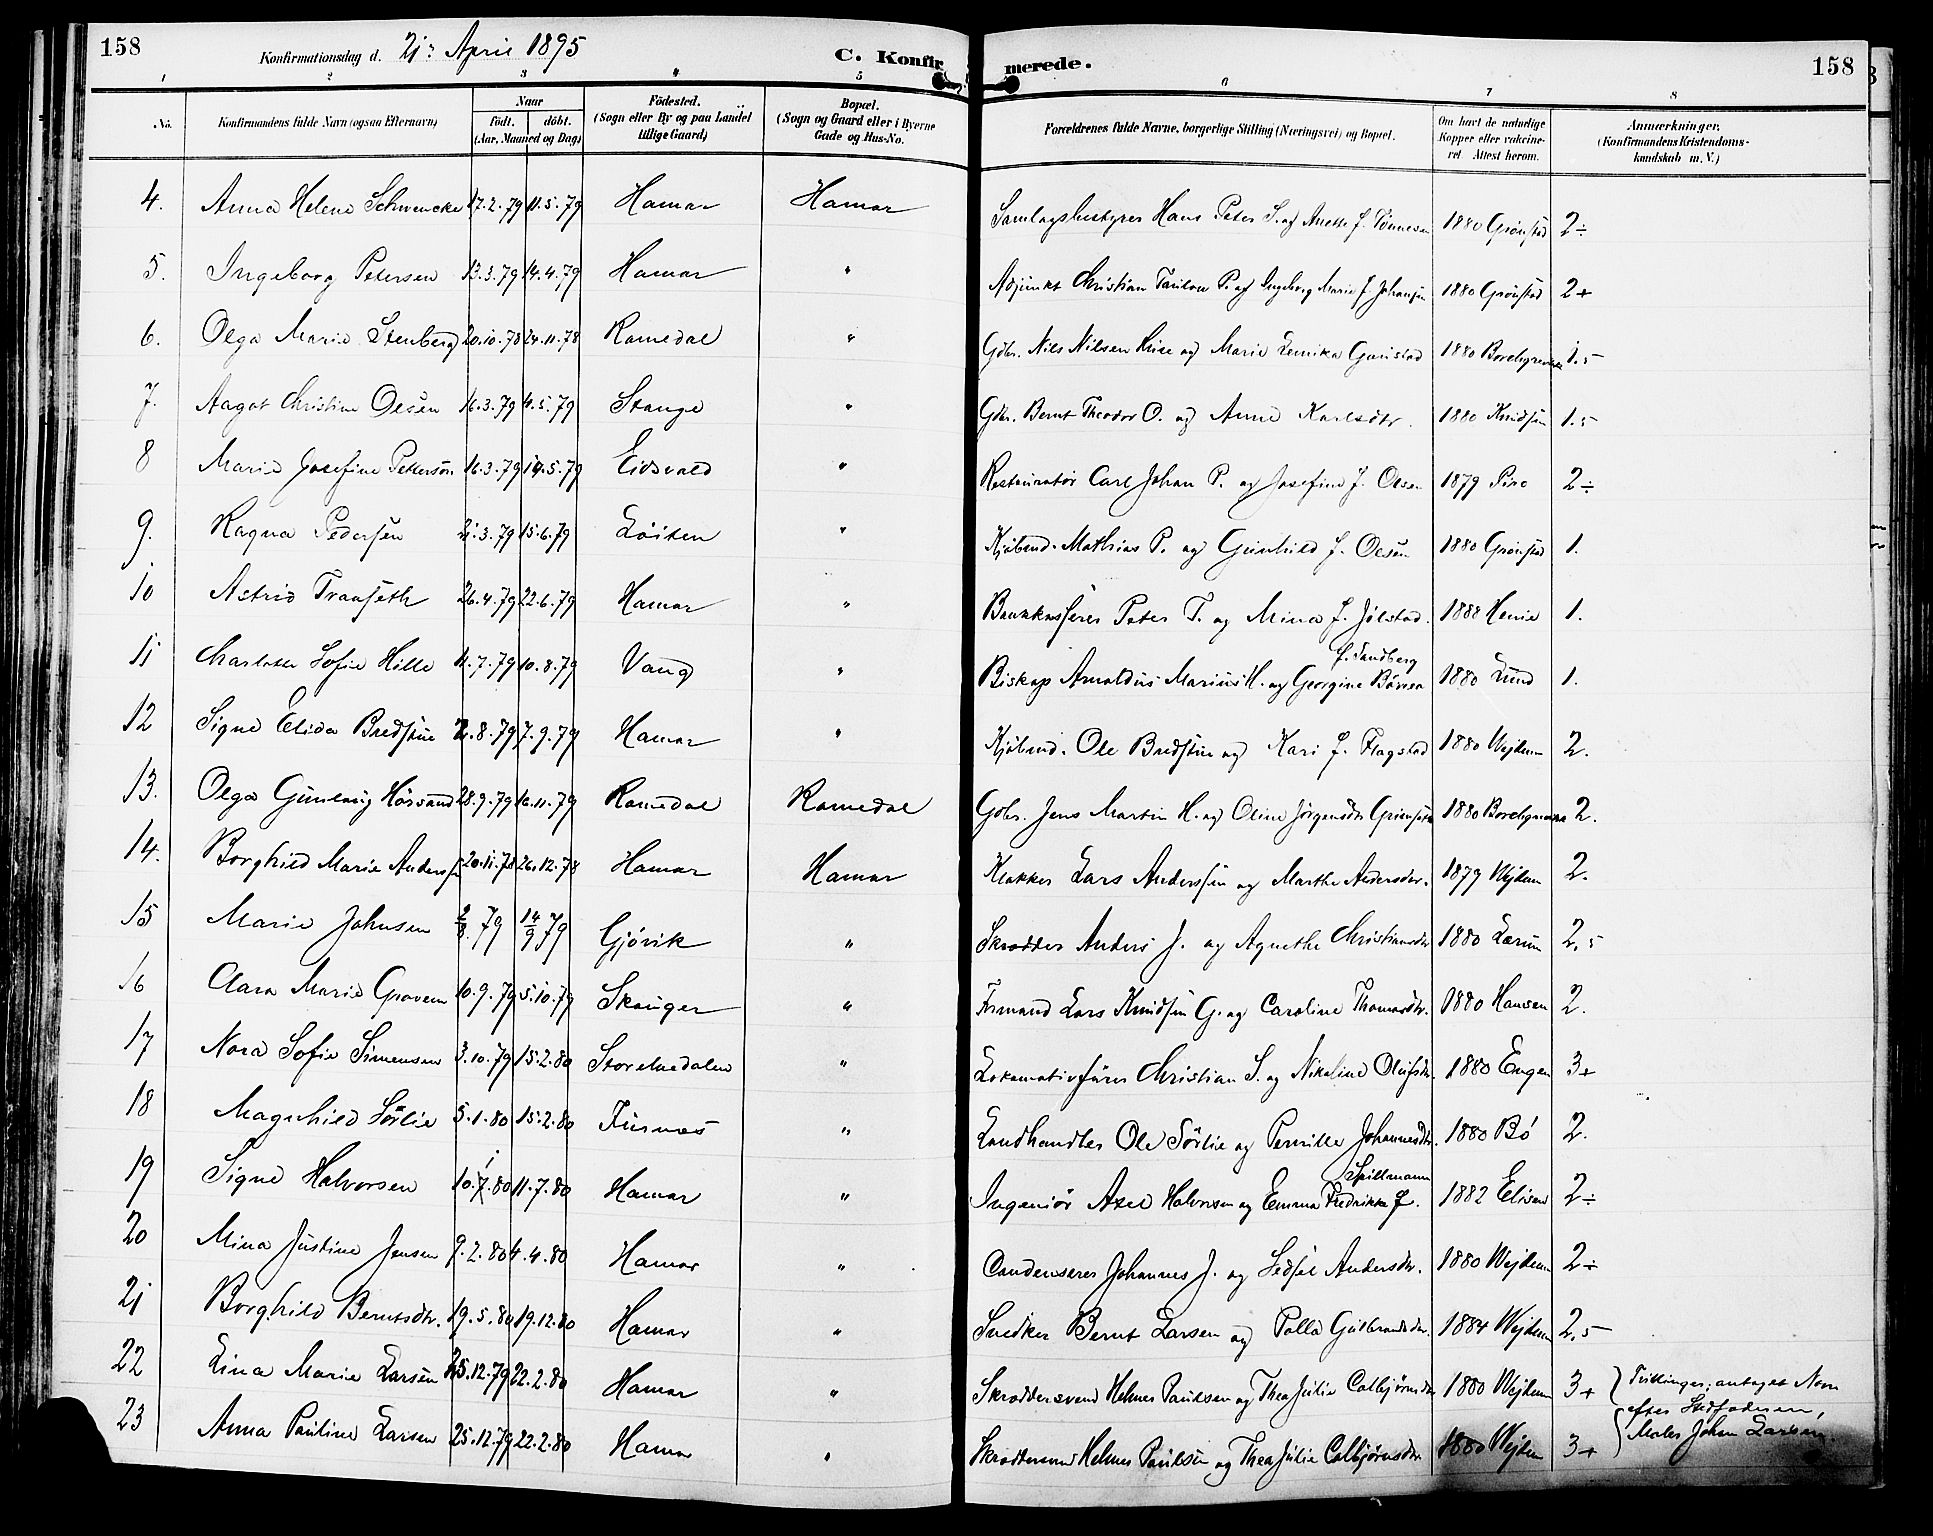 158
Konfirmationsdag d. 21: April 1895
C. Konfirmerede.
158
1 2 3 4 5 6 7 8
No.
Konfirmandens fulde Navn (ogsaa Efternavn)
Naar
födt. döbt.
(Aar, Maaned og Dag)
Födested.
(Sogn eller By og paa Landet
tillige Gaard)
Bopæl.
(Sogn og Gaard eller i Byerne
Gade og Hus-No.
Forældrenes fulde Navne, borgerlige Stilling (Næringsvei) og Bopæl.
Om havt de naturlige
Kopper eller vakcine-
ret Attest herom.
Anmærkninger.
(Konfirmandens Kristendoms-
kundskab m. V.)
4. Anna Helene Schwencke 17.2.79 11.5.79 Hamar Hamar Samlagsbestyrer Hans Peter S. og Anette f. Tönnesen 1880 Grönstad 2÷
5. Ingeborg Petersen 13.3.79 14.4.79 Hamar " Adjunkt Christian Paulow P. og Ingeborg Marie f. Johansen 1880 Grönstad 2+
6. Olga Marie Stenberg 20.10.78 24.11.78 Romedal " Gdbr. Nils Nilsen og Marie Gunstad 1880 Borchgrevink 1.5
7. Aagot Christine Olsen 16.3.79 4.5.79 Stange " Gdbr. Bernt Theodor O. og Anne Karlsdtr. 1880 Knudsen 1.5
8 Marie Josefine Pettersön 16.3.79 14.5.79 Eidsvold " Restauratör Carl Johan P. og Josefine f. Olsen 1879 Piro 2÷
9. Ragna Pedersen 21.3.79 15.6.79 Löiten " Kjöbmd. Mathias P. og Gunhild f. Olsen 1880 Grönstad 1.
10 Astrid Transeth 26.4.79 22.6.79 Hamar " Bankkasserer Peter T. og Mina f. Jölstad. 1888 Henie 1.
11 Charlotte Sofie Hille 11.7.79 10.8.79 Vang " Biskop Arnoldus Marius H. og Georgine Böyesen f. Sandberg 1880 Lund 1.
12 Signe Elida Bredstue 2.8.79 7.9.79 Hamar " Kjöbmd. Ole Bredstue og Kari f. Flagstad 1880 Wejdem 2.
13. Olga Gunlaug Hörsand 28.9.79 16.11.79 Romedal Romedal Gdbr. Jens Martin H. og Oline Jörgensdtr 1880 Borchgrevink 2.
14. Borghild Marie Anderssen 20.11.78 26.12.78 Hamar Hamar Klokker Lars Anderssen og Marthe Andersdtr. 1879 Wejdem 2.
15 Marie Johnsen 2/8.79 14/9 79 Gjövik " Skrædder Anders J. og Agnethe Christiansdtr 1880 Lærum 2,5
16 Clara Marie Graven 10.9.79 5.10.79 Skouger " Formand Lars Knudsen G. og Caroline Thomasdtr. 1880 Hansen 2.
17 Nora Sofie Simensen 3.10.79 15.2.80 Storelvedalen " Lokomotivförer Christian S. og Nikoline Olufsdtr. 1880 Engen 3+
18 Magnhild Sörlie 5.1.80 15.2.80 Furnæs " Landhandler Ole Sörlie og Pernille Johannesdtr. 1880 Bö 2.
19 Signe Halvorsen 10.1.80 11.7.80 Hamar " Ingeniör Axel Halvorsen og Emma Fredrikke f. Spillmann 1882 2÷
20 Mina Justine Jensen 9.2.80 4.4.80 Hamar " Condensører Johannes J. og Sidsel Andersdtr. 1880 Wejdem 2÷
21 Borghild Berntsdtr. 19.5.80 19.12.80 Hamar " Snedker Bernt Larsen og Polla Gulbrandsdtr 1884 Wejdem 2,5
22 Lina Marie Larsen 25.12.79 22.2.80 Hamar " Skræddersvend Helmer Paulsen og Thea Julie Colbjörnsdtr 1880 Wejdem 3+ Tvillinger; antaget Navn
efter Stedfaderen,
23 Anna Pauline Larsen 25.12.79 22.2.80 Hamar " Skræddersvend Helmer Paulsen og Thea Julie Colbjörnsdtr. 1880 Wejdem 3+ Maler Johan Larsen.